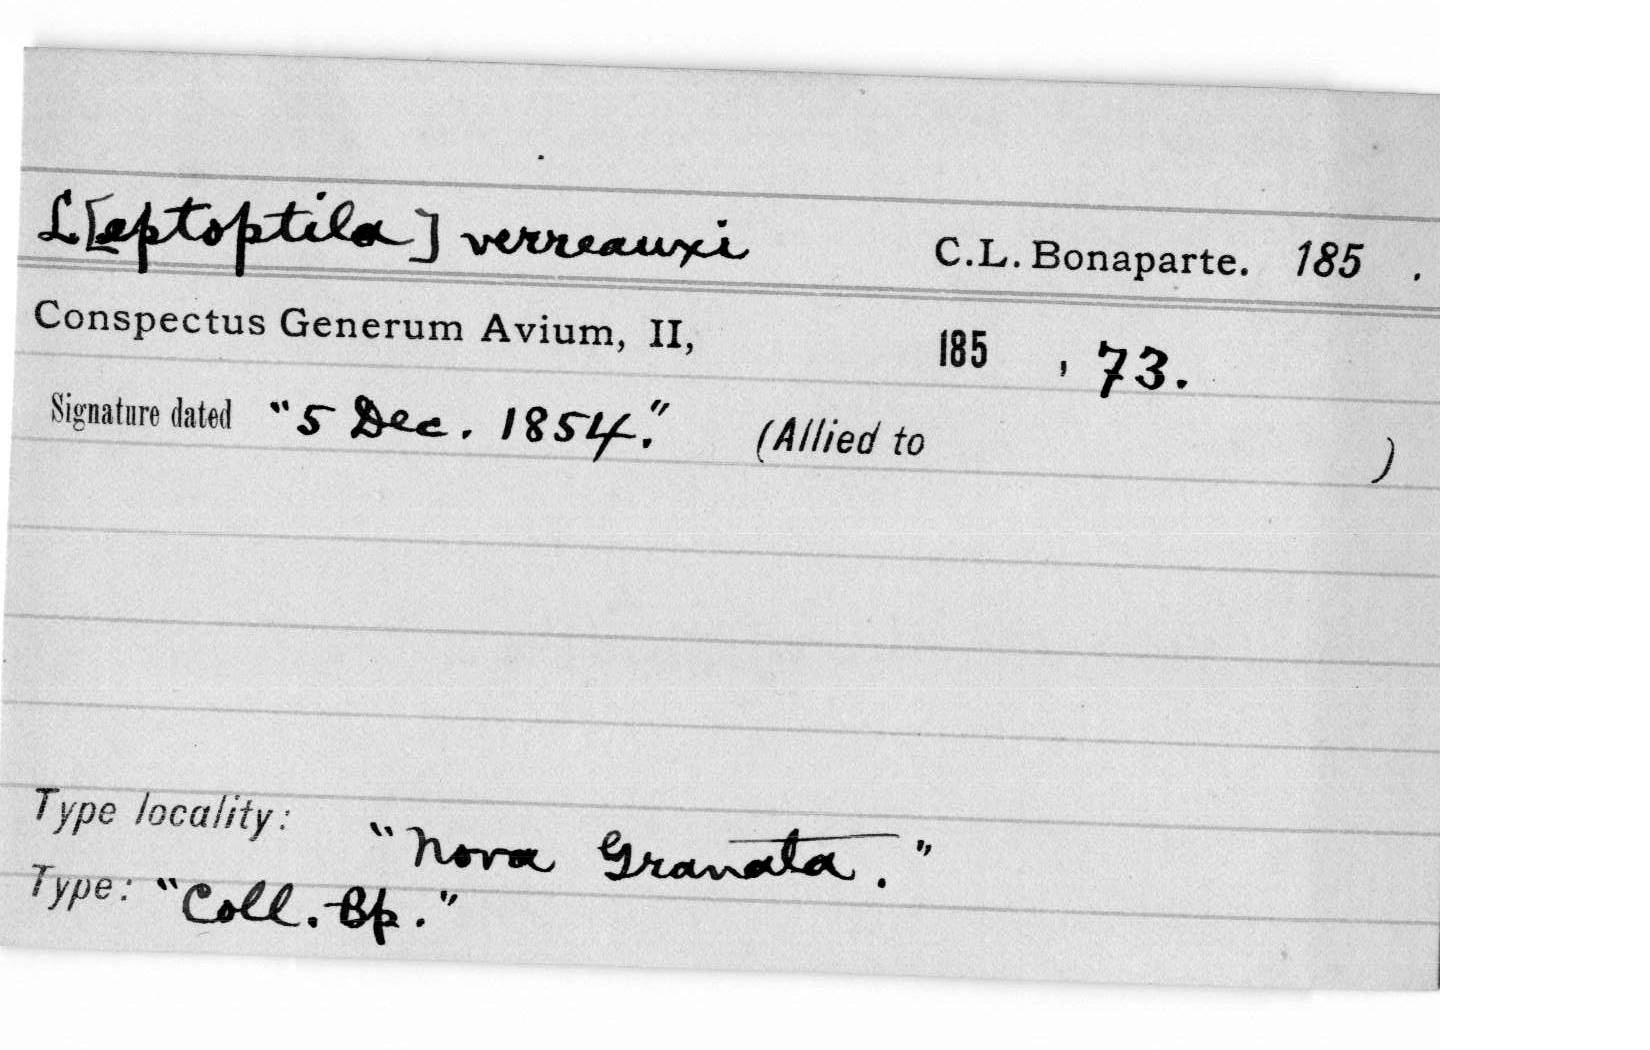 L[eptoptila] verreauxi C.L. Bonaparte. 185 .
Conspectus Generum Avium, II, 185 , 73.
Signature dated "5 Dec. 1854." (Allied to )
Type locality: "Nova Granata."
Type: "Coll. Bp."